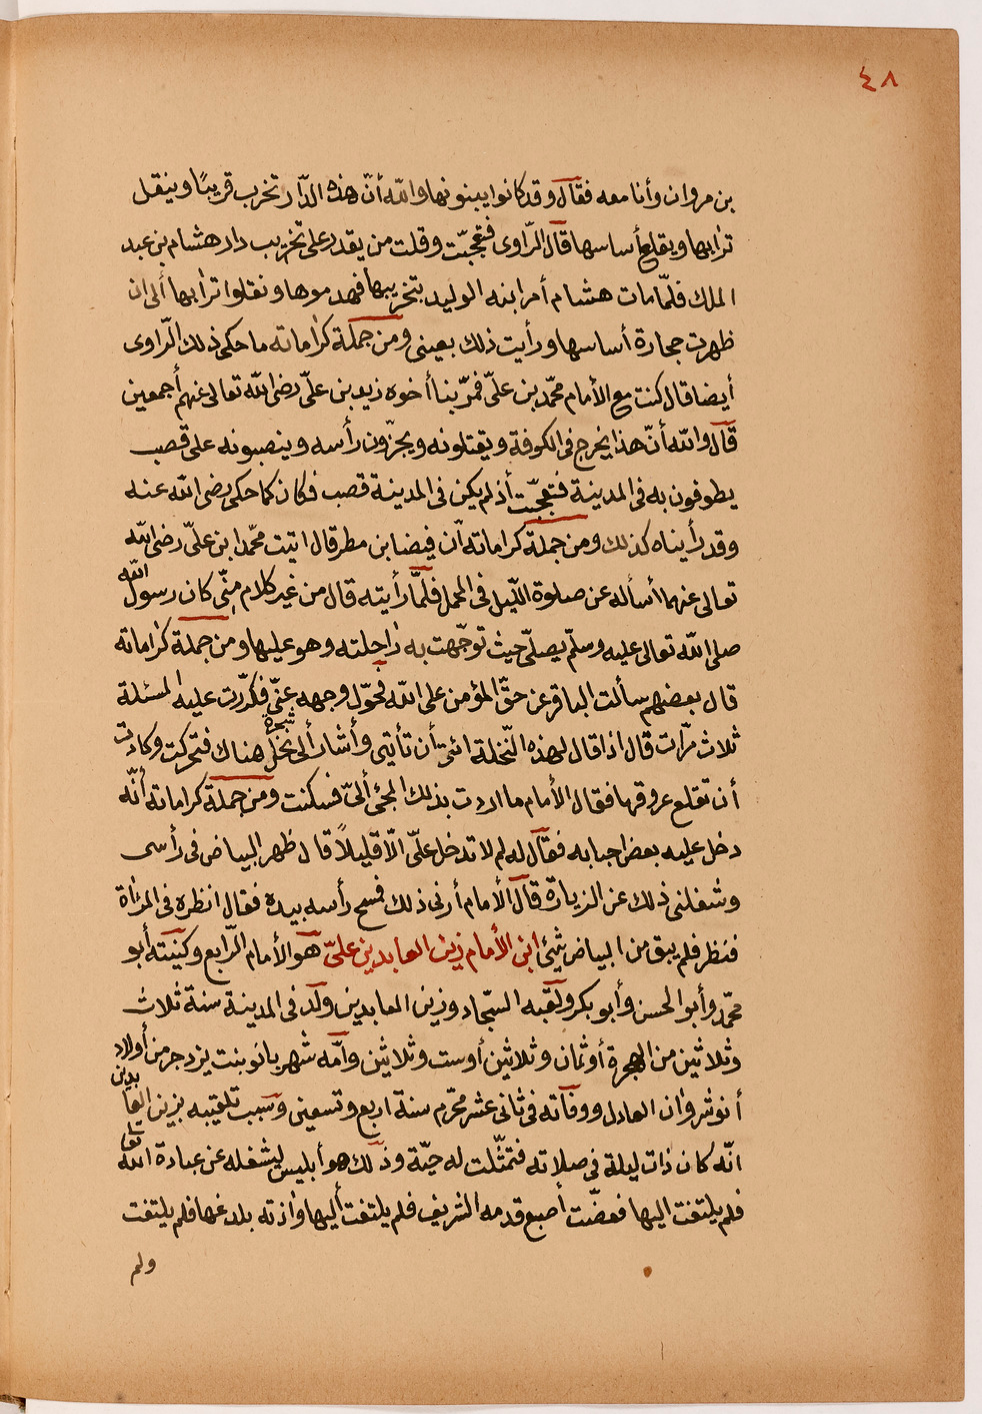 ٤٨
بن مروان وأنا معه فقال وقد كانوا يبنونها والله أنّ هذه الدّار تخرب قريبًا وينقل
ترابها ويقلع أساسها قال الرّاوى فتعجّبت وقلت من يقدر على تخريب دار هشام بن عبد
الملك فلمّا مات هشام أمر ابنه الوليد بتخريبها فهدموها ونقلوا ترابها ألى ان
ظهرت حجارة أساسها ورأيت ذلك بعينى ومن جملة كراماته ما حكى ذلك الرّاوى
أيضا قال كنت مع الأمام محمّد بن علىّ فمرّ بنا أخوه زيد بن علىّ رضى الله تعالى عنهم أجمعين
قال والله أنّ هذا يخرج فى الكوفة ويقتلونه ويجزّون رأسه وينصبونه على قصب
يطوفون به فى المدينة فتعجّبت أذ لم يكن فى المدينة قصب فكان كما حكى رضى الله عنه
وقد رأيناه كذلك ومن جملة كراماته أن فيضا بن مطر قال اتيت محمّدا بن علىّ رضى الله
تعالى عنهما أسأله عن صلوة اللّيل فى المحمل فلمّا رأيته قال من غير كلام منّى كان رسول الله
صلى الله تعالى عليه وسلّم يصلّى حيث توجّهت به راحلته وهو عليها ومن جملة كراماته
قال بعضهم سألت الباقر عن حقّ المؤمن على الله فحوّل وجهه عنّى فكرّرت عليه المسئلة
ثلاث مرّات قال اذا قال لهذه النّخلة ائتى أن تأتيى وأشار ألى نخل شجرة هناك فتحركت وكادت
أن تقلع عروقها فقال الأمام ما اردت بذلك المجئ ألىّ فسكنت ومن جملة كراماته أنّه
دخل عليه بعض احبابه فقال له لم لا تدخل علىّ الّا قليلاً قال ظهر البياض فى رأسى
وشغلنى ذلك عن الزيارة قال الأمام أرنى ذلك فمسح رأسه بيده فقال انظره فى المرآة
فنظر فلم يبق من البياض شيئ ابن الأمام زين العابدين علىّ هو الأمام الرّابع وكنيته أبو
محمّد وأبو الحسن وأبو بكر ولقبه السجّاد وزين العابدين ولد فى المدينة سنة ثلاث
وثلاثين من الهجرة أو ثمان وثلاثين أو ست وثلاثين وأمّه شهربانو بنت يزدجر من أولاد
أنوشروان العادل ووفاته فى ثانى عشر محرّم سنة اربع وتسعين وسبب تلقيبه بزين العابدين
انّه كان ذات ليلة فى صلاته فتمثّلت له حيّة وذلك هو أبليس ليشغله عن عبادة الله تعا
فلم يلتفت اليها فعضّت أصبع قدمه الشريف فلم يلتفت أليها واذته بلدغها فلم يلتفت
ولم